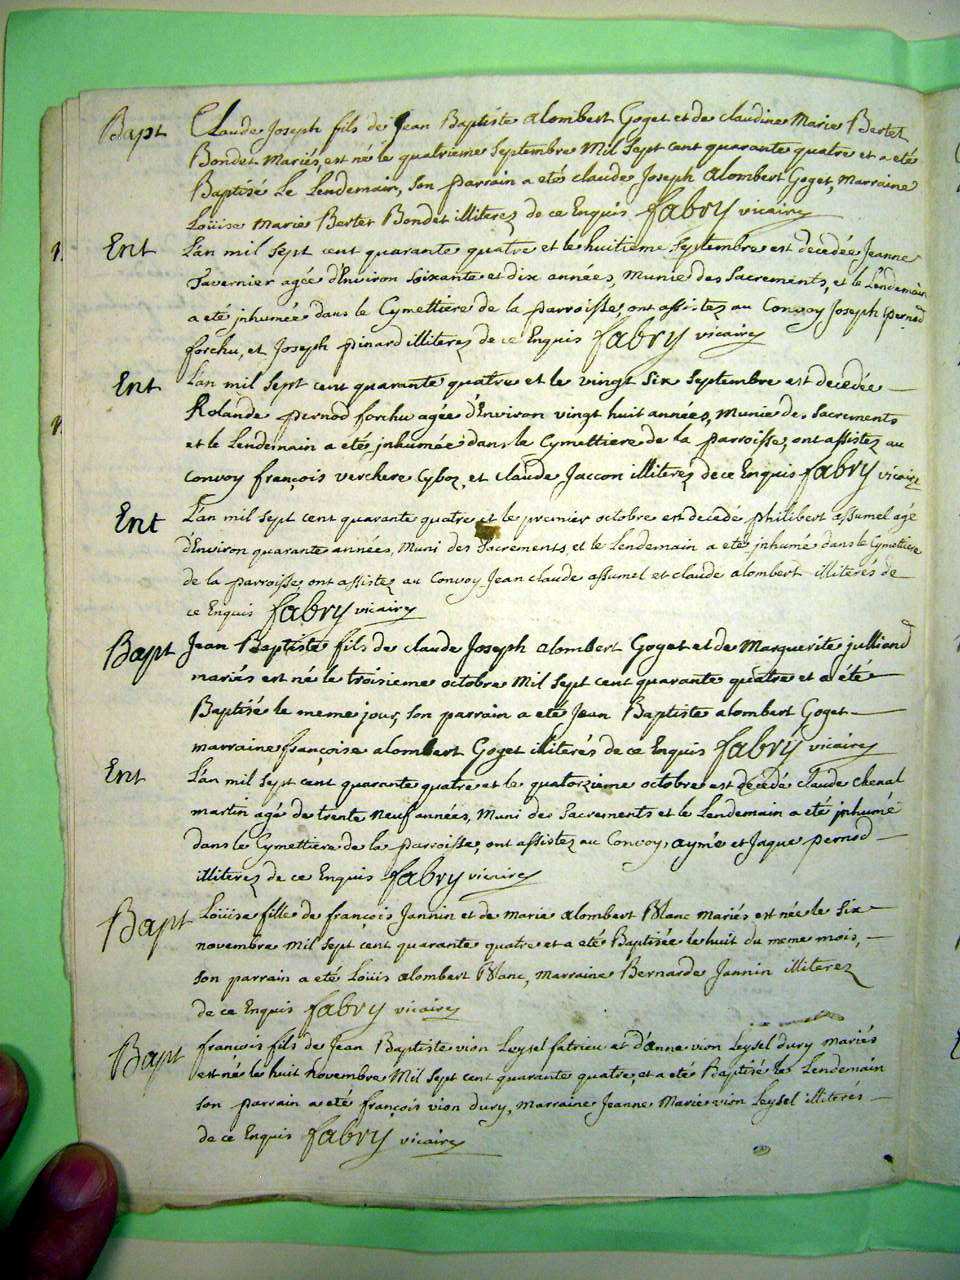 Bapt Claude Joseph fils de Jean Baptiste alombert Goget et de claudine Marie Bertet
Bondet Mariés, est né le quatrieme Septembre Mil Sept cent quarante quatre et a eté
Baptisé Le Lendemain, Son parrain a eté claude Joseph alombert Goget, Marraine
Loüise Marie Bertet Bondet illiterez de ce Enquis fabry vicaire
Ent L'an mil Sept cent quarante quatre et le huitieme Septembre est decedée Jeanne
Tavernier agée d'Environ Soixante et dix années, Munie des Sacrements, et le Lendemain
a eté jnhumée dans le Cymettiere de la parroisse, ont assistez au Convoy Joseph pernod
forchu, et Joseph pinard illiterez de ce Enquis fabry vicaire
Ent L'an mil Sept cent quarante quatre et le vingt Six Septembre est decedée
Rolande pernod forchu agée d'Environ vingt huit années, Munie des Sacrements
et le Lendemain a eté jnhumée dans le Cymettiere de la parroisse, ont assistez au
Convoy françois verchere Cyboz, et claude Jaccon illiterez de ce Enquis fabry vicaire
Ent L'an mil Sept cent quarante quatre et le premier octobre est decedé philibert assumel agé
d'Environ quarante années, Muni des Sacrements et le Lendemain a eté jnhumé dans le Cymettiere
de la parroisse ont assistez au Convoy Jean claude assumel et claude alombert illiterés de
ce Enquis fabry vicaire
Bapt Jean Baptiste fils de claude Joseph alombert Goget et de Marguerite julliand
mariés est né le troisieme octobre Mil Sept cent quarante quatre et a eté
Baptisé le meme jour, Son parrain a eté Jean Baptiste alombert Goget
marraine françoise alombert Goget illiterés de ce Enquis fabry vicaire
Ent L'an mil Sept cent quarante quatre et le quatorzieme octobre est decedé claude chenal
martin agé de trente neuf années, Muni des Sacrements et le Lendemain a eté jnhumé
dans le Cymettiere de la parroisse, ont assistez au Convoy, aymé et Jaque pernod
illiterez de ce Enquis fabry vicaire
Bapt Loüise fille de françois Jannin et de Marie alombert Blanc Mariés est née le Six
novembre Mil Sept cent quarante quatre et a eté Baptisée le huit du meme mois,
Son parrain a eté Loüis alombert Blanc, Marraine Bernarde Jannin illiterez
de ce Enquis fabry vicaire
Bapt françois fils de Jean Baptiste vion Leysel fatrieu et d'anne vion Leysel dury mariés
est né le huit novembre Mil Sept cent quarante quatre, et a eté Baptisé le Lendemain
Son parrain a eté françois vion dury, Marraine Jeanne Marie vion Leysel illiterés
de ce Enquis fabry vicaire